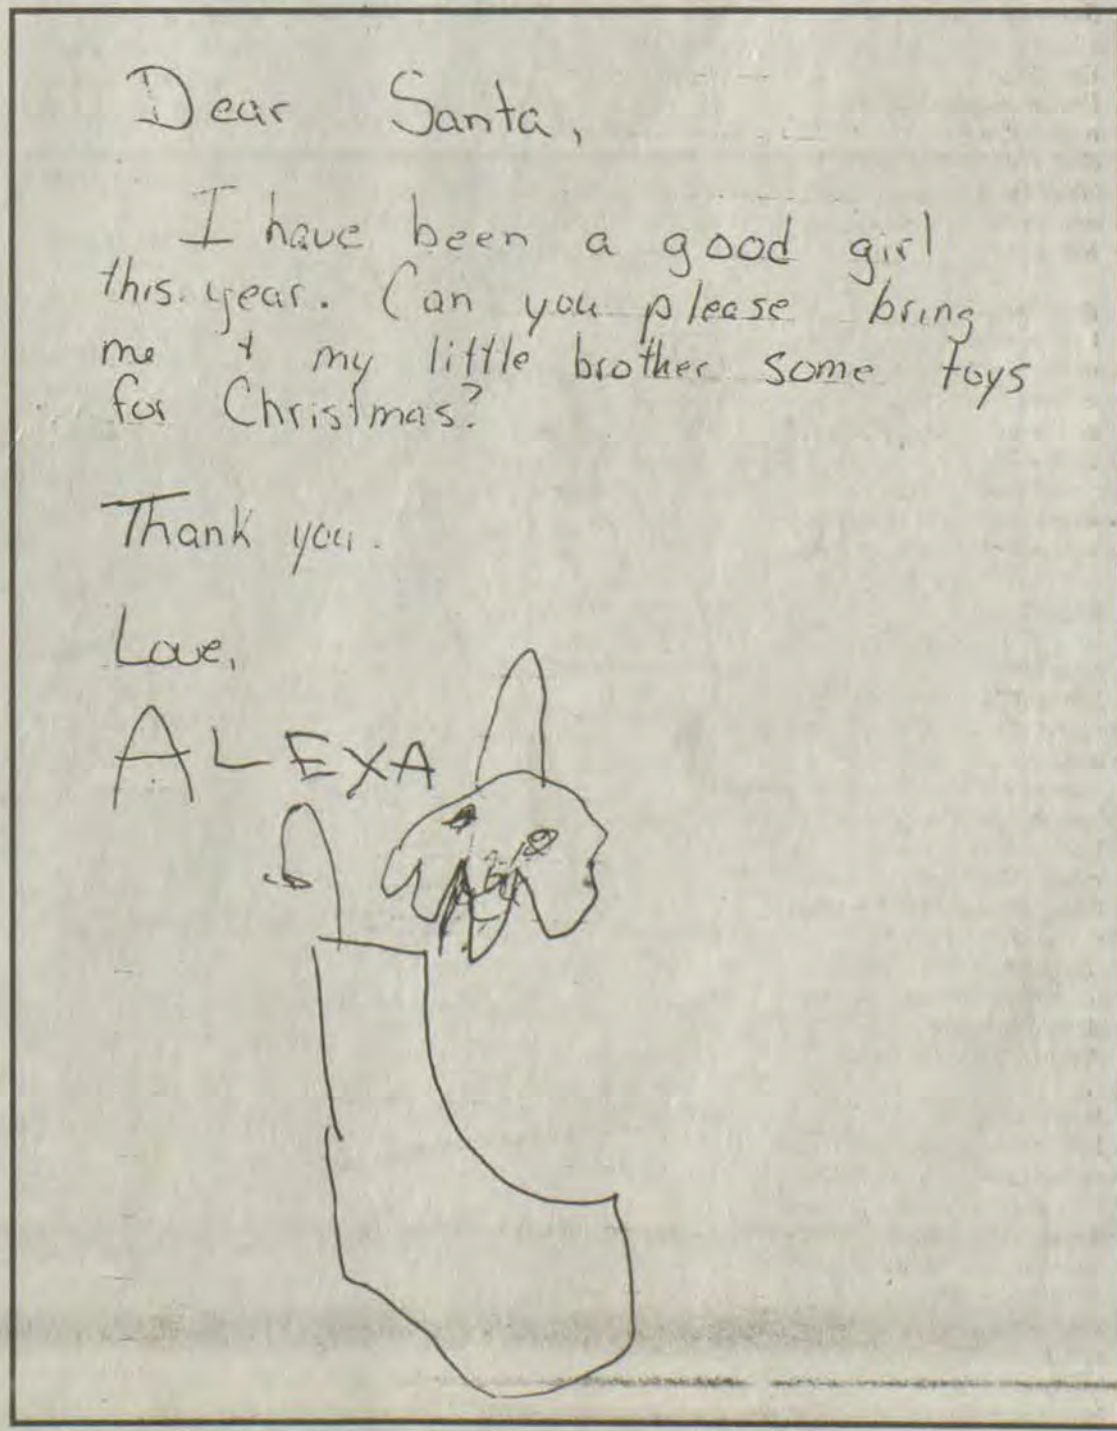 Dear Santa,
I have been a good girl
this year. Can you please bring
me + my little brother some toys
for Christmas?
Thank you.
Love,
ALEXA